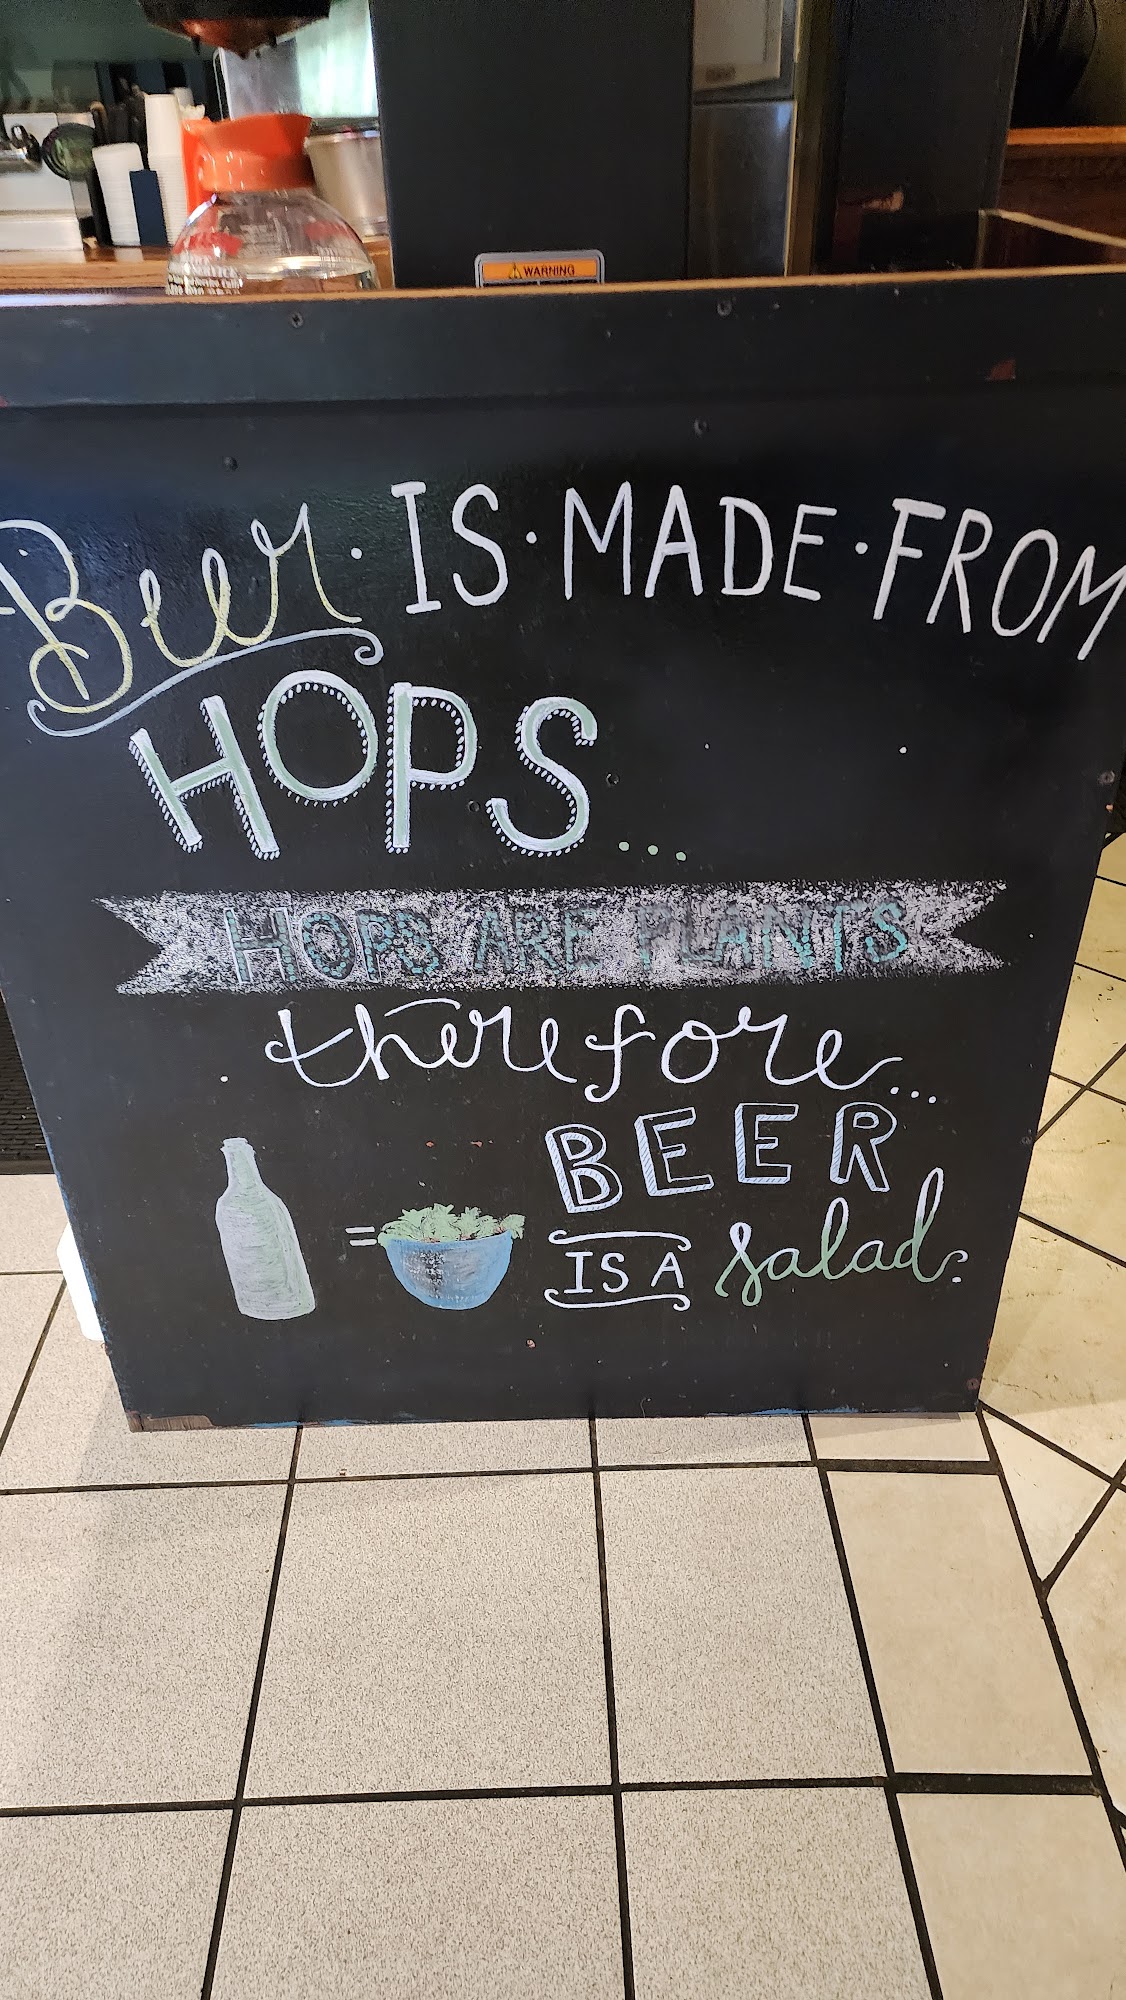 WARNING
Beer · IS · MADE · FROM
HOPS...
HOPS ARE PLANTS
therefore...
BEER
=
IS A salad.